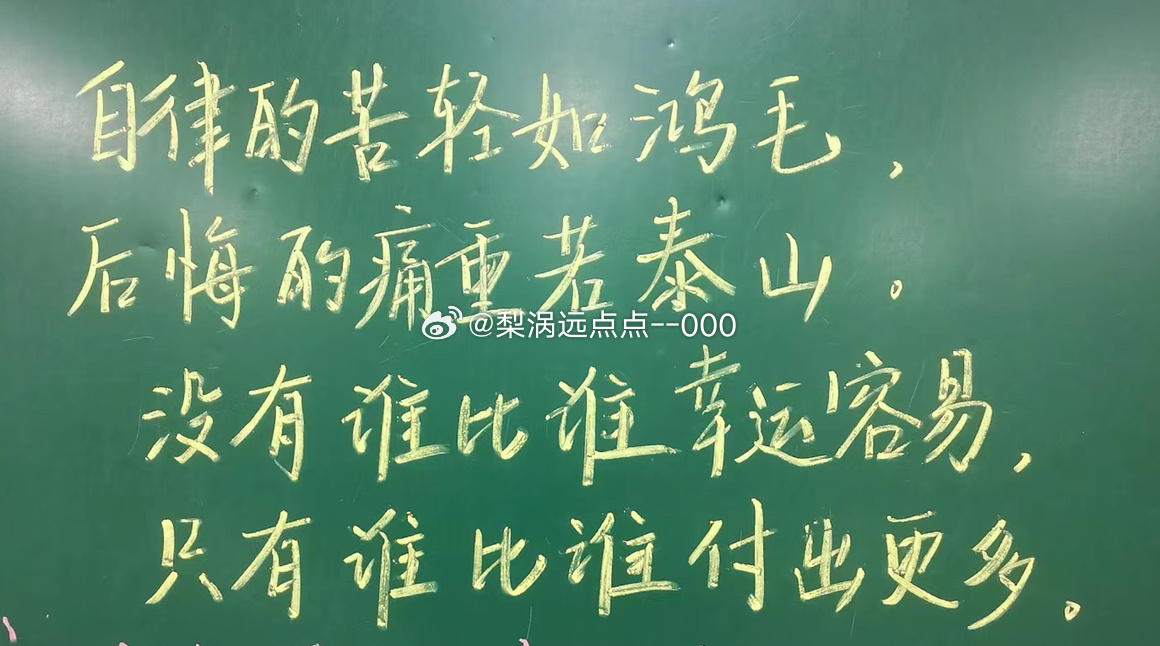 自律的苦轻如鸿毛，
后悔的痛重若泰山。
@梨涡远点点--000
没有谁比谁幸运容易，
只有谁比谁付出更多。